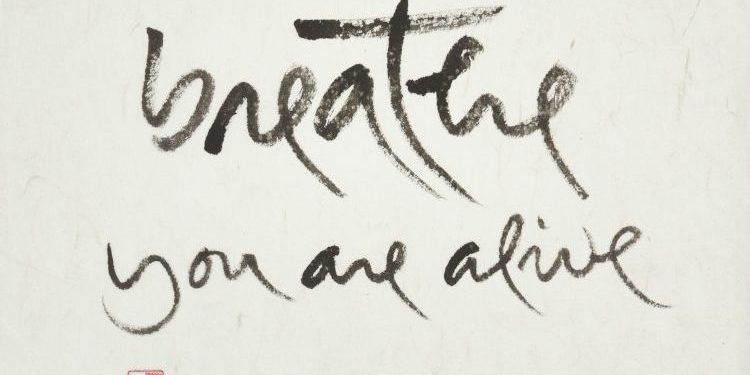 breathe
you are alive